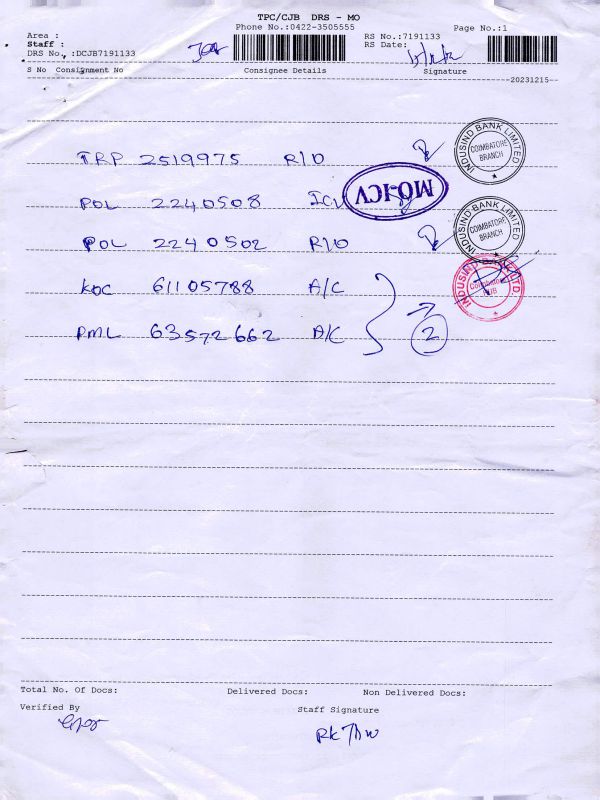 TPC/CJB DRS - MO
Phone No.:0422-3505555
Page No.:1
Area :
Staff :
DRS No.,:DCJB7191133
RS No.:7191133
RS Date:
S No Consignment No Consignee Details Signature
20231215
TRP 2519975 R/O
INDUSIND BANK LIMITED
COIMBATORE
BRANCH
POL 2240508 ICV
MO-ICV
INDUSIND BANK LIMITED
COIMBATORE
BRANCH
POL 2240502 R/O
KDC 61105788 A/C
INDUSIND BANK LTD
HUB
PML 63572662 A/C
2
Total No. Of Docs: Delivered Docs: Non Delivered Docs:
Verified By Staff Signature